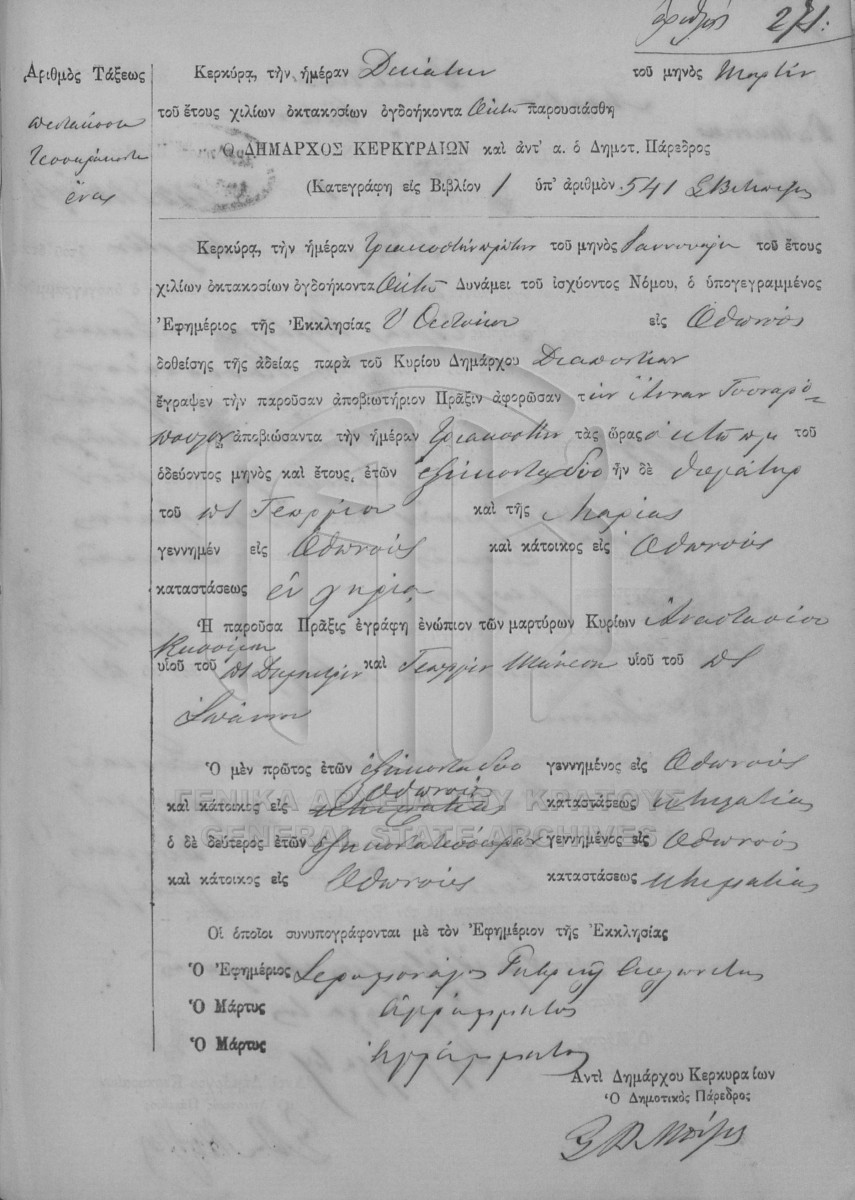 ἀριθμός 271:
Ἀριθμὸς Τάξεως
πεντακόσια
τεσσαράκοντα
ένας
Κερκύρᾳ, τὴν ἡμέραν Δεκάτην τοῦ μηνὸς Μαρτίου
τοῦ ἔτους χιλίων ὀκτακοσίων ὀγδοήκοντα Ὀκτὼ παρουσιάσθη
Ὁ ΔΗΜΑΡΧΟΣ ΚΕΡΚΥΡΑΙΩΝ καὶ ἀντ' α. ὁ Δημοτ. Πάρεδρος
(Κατεγράφη εἰς Βιβλίον 1 ὑπ' ἀριθμὸν 541
Κερκύρᾳ, τὴν ἡμέραν τριακοστὴν πρώτην τοῦ μηνὸς Ἰαννουαρίου τοῦ ἔτους
χιλίων ὀκτακοσίων ὀγδοήκοντα Ὀκτὼ Δυνάμει τοῦ ἰσχύοντος Νόμου, ὁ ὑπογεγραμμένος
Ἐφημέριος τῆς Ἐκκλησίας Υ Θεοτόκου εἰς Ὀθωνούς
δοθείσης τῆς ἀδείας παρὰ τοῦ Κυρίου Δημάρχου Διαποντίων
ἔγραψεν τὴν παροῦσαν ἀποβιωτήριον Πρᾶξιν ἀφορῶσαν τὴν Ἄνναν
ἀποβιώσαντα τὴν ἡμέραν τριακοστὴν τὰς ὥρας ὀκτὼ πμ τοῦ
ὁδεύοντος μηνὸς καὶ ἔτους, ἐτῶν ἑξήκοντα δύο ἦν δὲ θυγάτηρ
τοῦ πτ Γεωργίου καὶ τῆς Μαρίας
γεννημέν εἰς Ὀθωνούς καὶ κάτοικος εἰς Ὀθωνούς
καταστάσεως ἐν χηρίᾳ
Ἡ παροῦσα Πρᾶξις ἐγράφη ἐνώπιον τῶν μαρτύρων Κυρίων Ἀναστασίου
Κασσίμη
υἱοῦ τοῦ πτ Δημητρίου καὶ Γεωργίου υἱοῦ τοῦ πτ
Ἰωάννου
Ὁ μὲν πρῶτος ἐτῶν ἑξήκοντα δύο γεννημένος εἰς Ὀθωνούς
Ὀθωνούς
καὶ κάτοικος εἰς κτηματίας καταστάσεως κτηματίας
ὁ δὲ δεύτερος ἐτῶν ἑξήκοντα τεσσάρων γεννημένος εἰς Ὀθωνούς
καὶ κάτοικος εἰς Ὀθωνούς καταστάσεως κτηματίας
Οἱ ὁποῖοι συνυπογράφονται μὲ τὸν Ἐφημέριον τῆς Ἐκκλησίας
Ὁ Ἐφημέριος Ἱερομόναχος
Ὁ Μάρτυς ἀγράμματος
Ὁ Μάρτυς ἀγράμματος
Ἀντὶ Δημάρχου Κερκυραίων
Ὁ Δημοτικὸς Πάρεδρος
ΓΕΝΙΚΑ ΑΡΧΕΙΑ ΤΟΥ ΚΡΑΤΟΥΣ
GENERAL STATE ARCHIVES